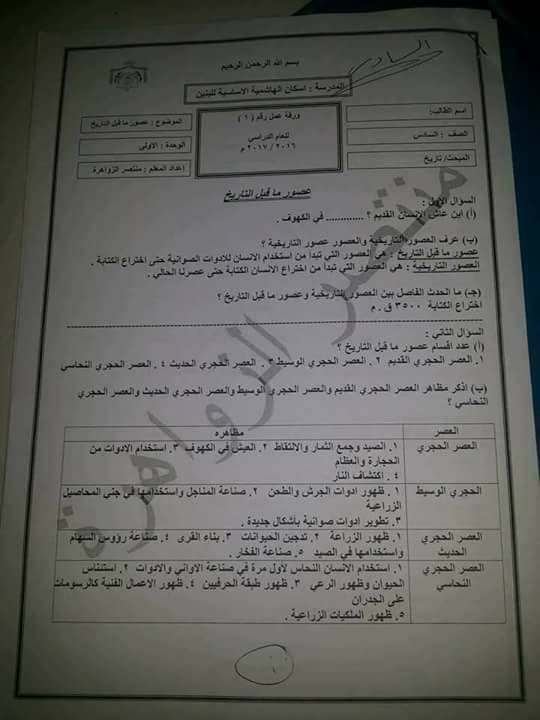 السادس
بسم الله الرحمن الرحيم
المدرسة : اسكان الهاشمية الاساسية للبنين
اسم الطالب:
الصف : السادس
المبحث/ تاريخ
ورقة عمل رقم ( ١ )
للعام الدراسي
٢٠١٦ / ٢٠١٧ م
الموضوع : عصور ما قبل التاريخ
الوحدة : الاولى
اعداد المعلم : منتصر الزواهرة
عصور ما قبل التاريخ
السؤال الاول :
(أ) اين عاش الانسان القديم ؟ ............ في الكهوف .
(ب) عرف العصور التاريخية والعصور عصور التاريخية ؟
عصور ما قبل التاريخ : هي العصور التي تبدأ من استخدام الانسان للادوات الصوانية حتى اختراع الكتابة .
العصور التاريخية : هي العصور التي تبدأ من اختراع الانسان الكتابة حتى عصرنا الحالي .
(جـ) ما الحدث الفاصل بين العصور التاريخية وعصور ما قبل التاريخ ؟
اختراع الكتابة ٣٥٠٠ ق . م
السؤال الثاني :
(أ) عدد اقسام عصور ما قبل التاريخ ؟
١. العصر الحجري القديم ٢. العصر الحجري الوسيط ٣. العصر الحجري الحديث ٤. العصر الحجري النحاسي
(ب) اذكر مظاهر العصر الحجري القديم والعصر الحجري الوسيط والعصر الحجري الحديث والعصر الحجري
النحاسي ؟
العصر
مظاهره
العصر الحجري
القديم
١. الصيد وجمع الثمار والالتقاط ٢. العيش في الكهوف ٣. استخدام الادوات من
الحجارة والعظام
٤ . اكتشاف النار
الحجري الوسيط
١ . ظهور ادوات الجرش والطحن ٢. صناعة المناجل واستخدامها في جني المحاصيل
الزراعية
٣. تطوير ادوات صوانية بأشكال جديدة .
العصر الحجري
الحديث
١. ظهور الزراعة ٢. تدجين الحيوانات ٣. بناء القرى ٤. صناعة رؤوس السهام
واستخدامها في الصيد ٥. صناعة الفخار .
العصر الحجري
النحاسي
١. استخدام الانسان النحاس لاول مرة في صناعة الاواني والادوات ٢. استئناس
الحيوان وظهور الرعي ٣. ظهور طبقة الحرفيين ٤. ظهور الاعمال الفنية كالرسومات
على الجدران
٥. ظهور الملكيات الزراعية .
منتصر الزواهرة